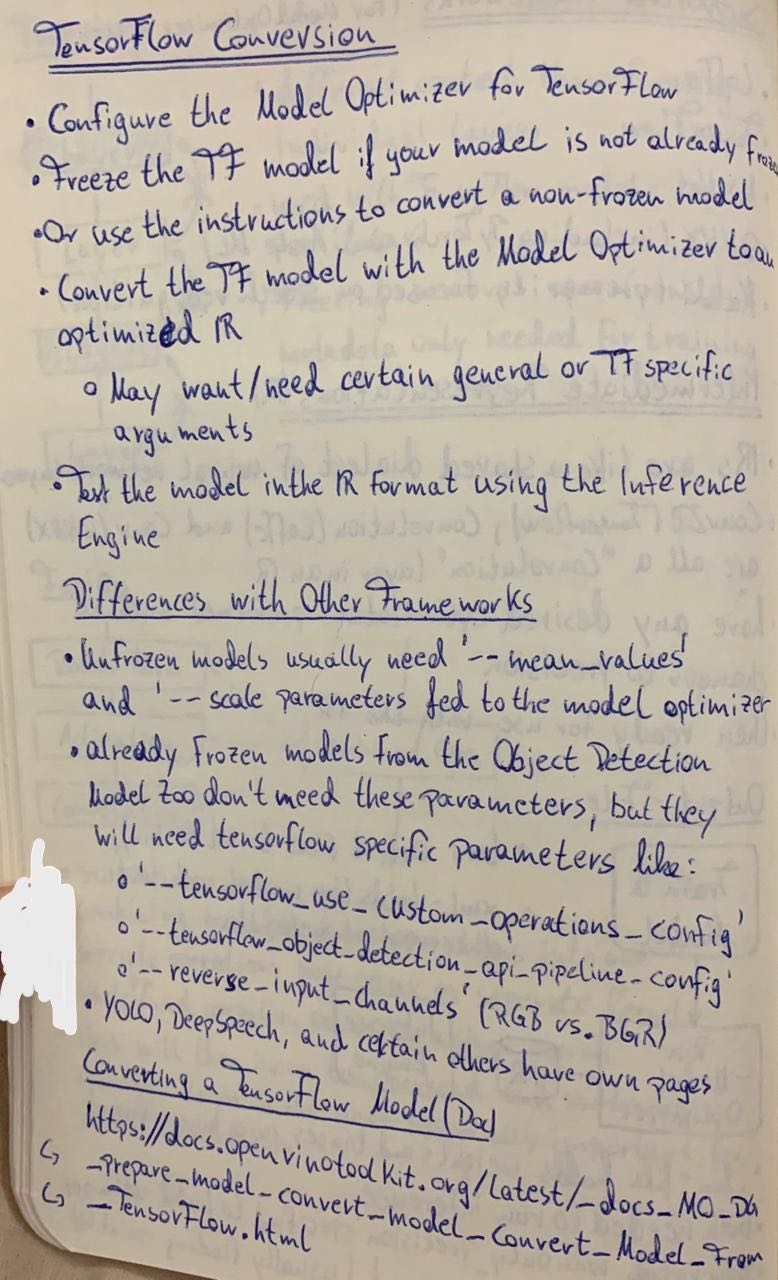 TensorFlow Conversion
• Configure the Model Optimizer for TensorFlow
• Freeze the TF model if your model is not already froze
• Or use the instructions to convert a non-frozen model
• Convert the TF model with the Model Optimizer to an
optimized IR
o May want/need certain general or TF specific
arguments
• Test the model in the IR format using the Inference
Engine
Differences with Other Frameworks
• Unfrozen models usually need '--mean_values'
and '--scale parameters fed to the model optimizer
• already Frozen models from the Object Detection
Model Zoo don't need these parameters, but they
will need tensorflow specific parameters like:
o '--tensorflow_use_custom_operations_config'
o '--tensorflow_object_detection_api_pipeline-config'
o '--reverse_input_channels' (RGB vs. BGR)
• YOLO, DeepSpeech, and certain others have own pages
Converting a TensorFlow Model (Doc)
https://docs.openvinotoolkit.org/latest/_docs_MO_DG
↳ _prepare_model_convert_model_Convert_Model_From
↳ _TensorFlow.html